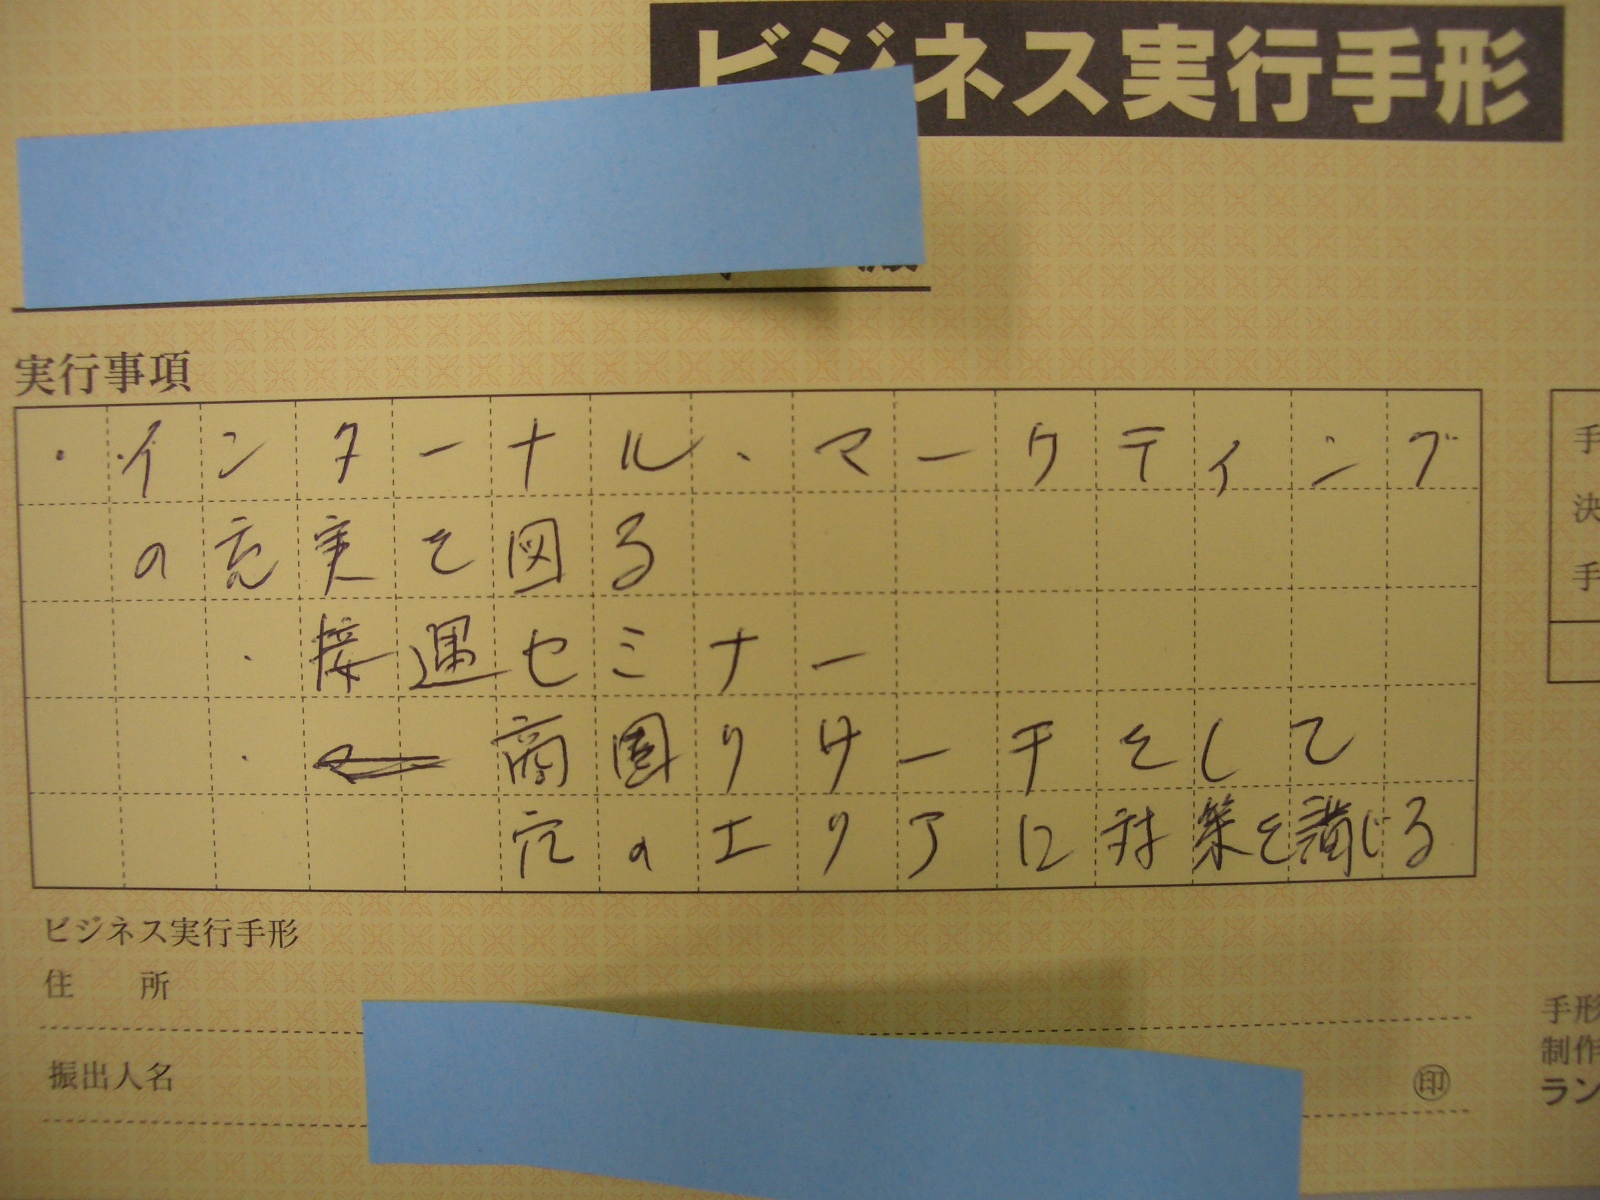 ビジネス実行手形
実行事項
・インターナル・マーケティング
の充実を図る
・接遇セミナー
・商圏リサーチをして
穴のエリアに対策を講じる
ビジネス実行手形
住 所
振出人名
印
手
決
手
手形
制作
ラン